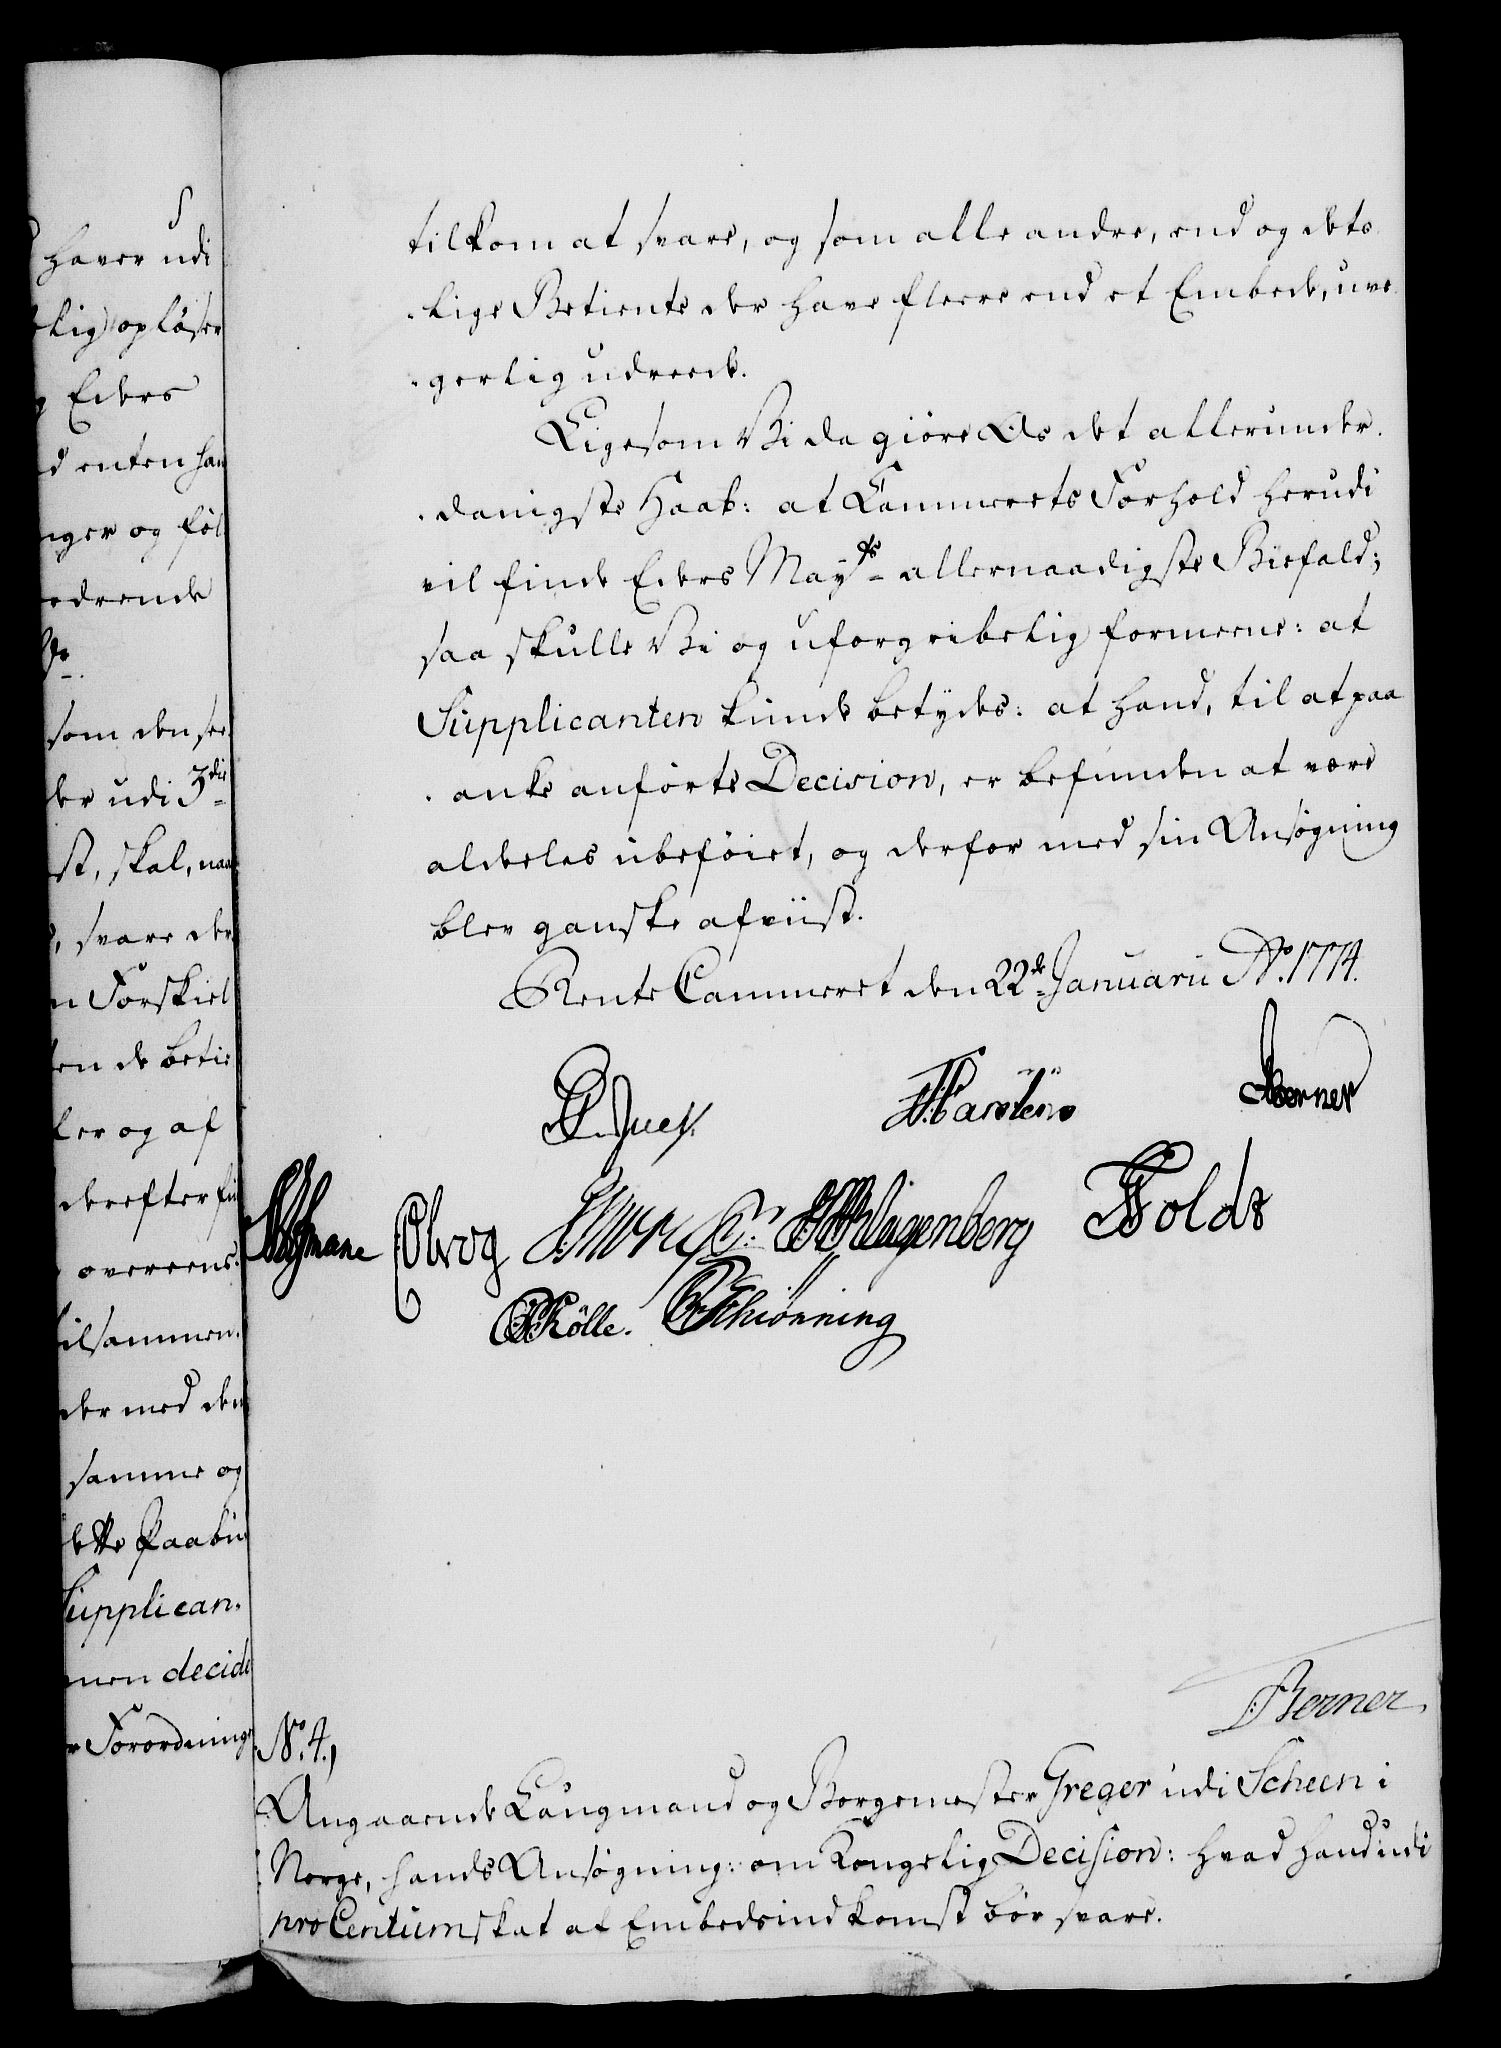 haver udi
lig opløser
Eders
enten han
nger og føl
edrende
som den see
der udi 3die
st, skal, naa
svare der
n Forskiel
en de beti-
ler og af
derefter
overeens-
tilsammen-
der med den
samme og
dette Paabu
Supplican-
men decide
Forordnings
tilkom at svare, og som alle andre, end og dets
lige Betiente der have fleere end et Embede, uve-
gerlig udreede.
Ligesom Vi da giøre Os det allerunder-
danigste Haab: at Cammerets Forhold herudi
vil finde Eders Mayts allernaadigste Biefald;
saa skulle Vi og uforgribelig formeene: at
Supplicanten kunde betydes: at hand, til at paa
anke anførte Decision, er befunden at være
aldeles ubeføiet, og derfor med sin Ansøgning
blev ganske afviist.
Rente Cammeret den 22de Januarii Ao. 1774.
Juel. Karstens Berner
Holdt
Kölle. Schiönning
Berner
No. 4.,
Angaaende Laugmand og Borgemester Greger udi Scheen i
Norge, hands Ansøgning: om Kongelig Decision: hvad hand udi
pro Centum skat af Embedsindkomst bør svare.